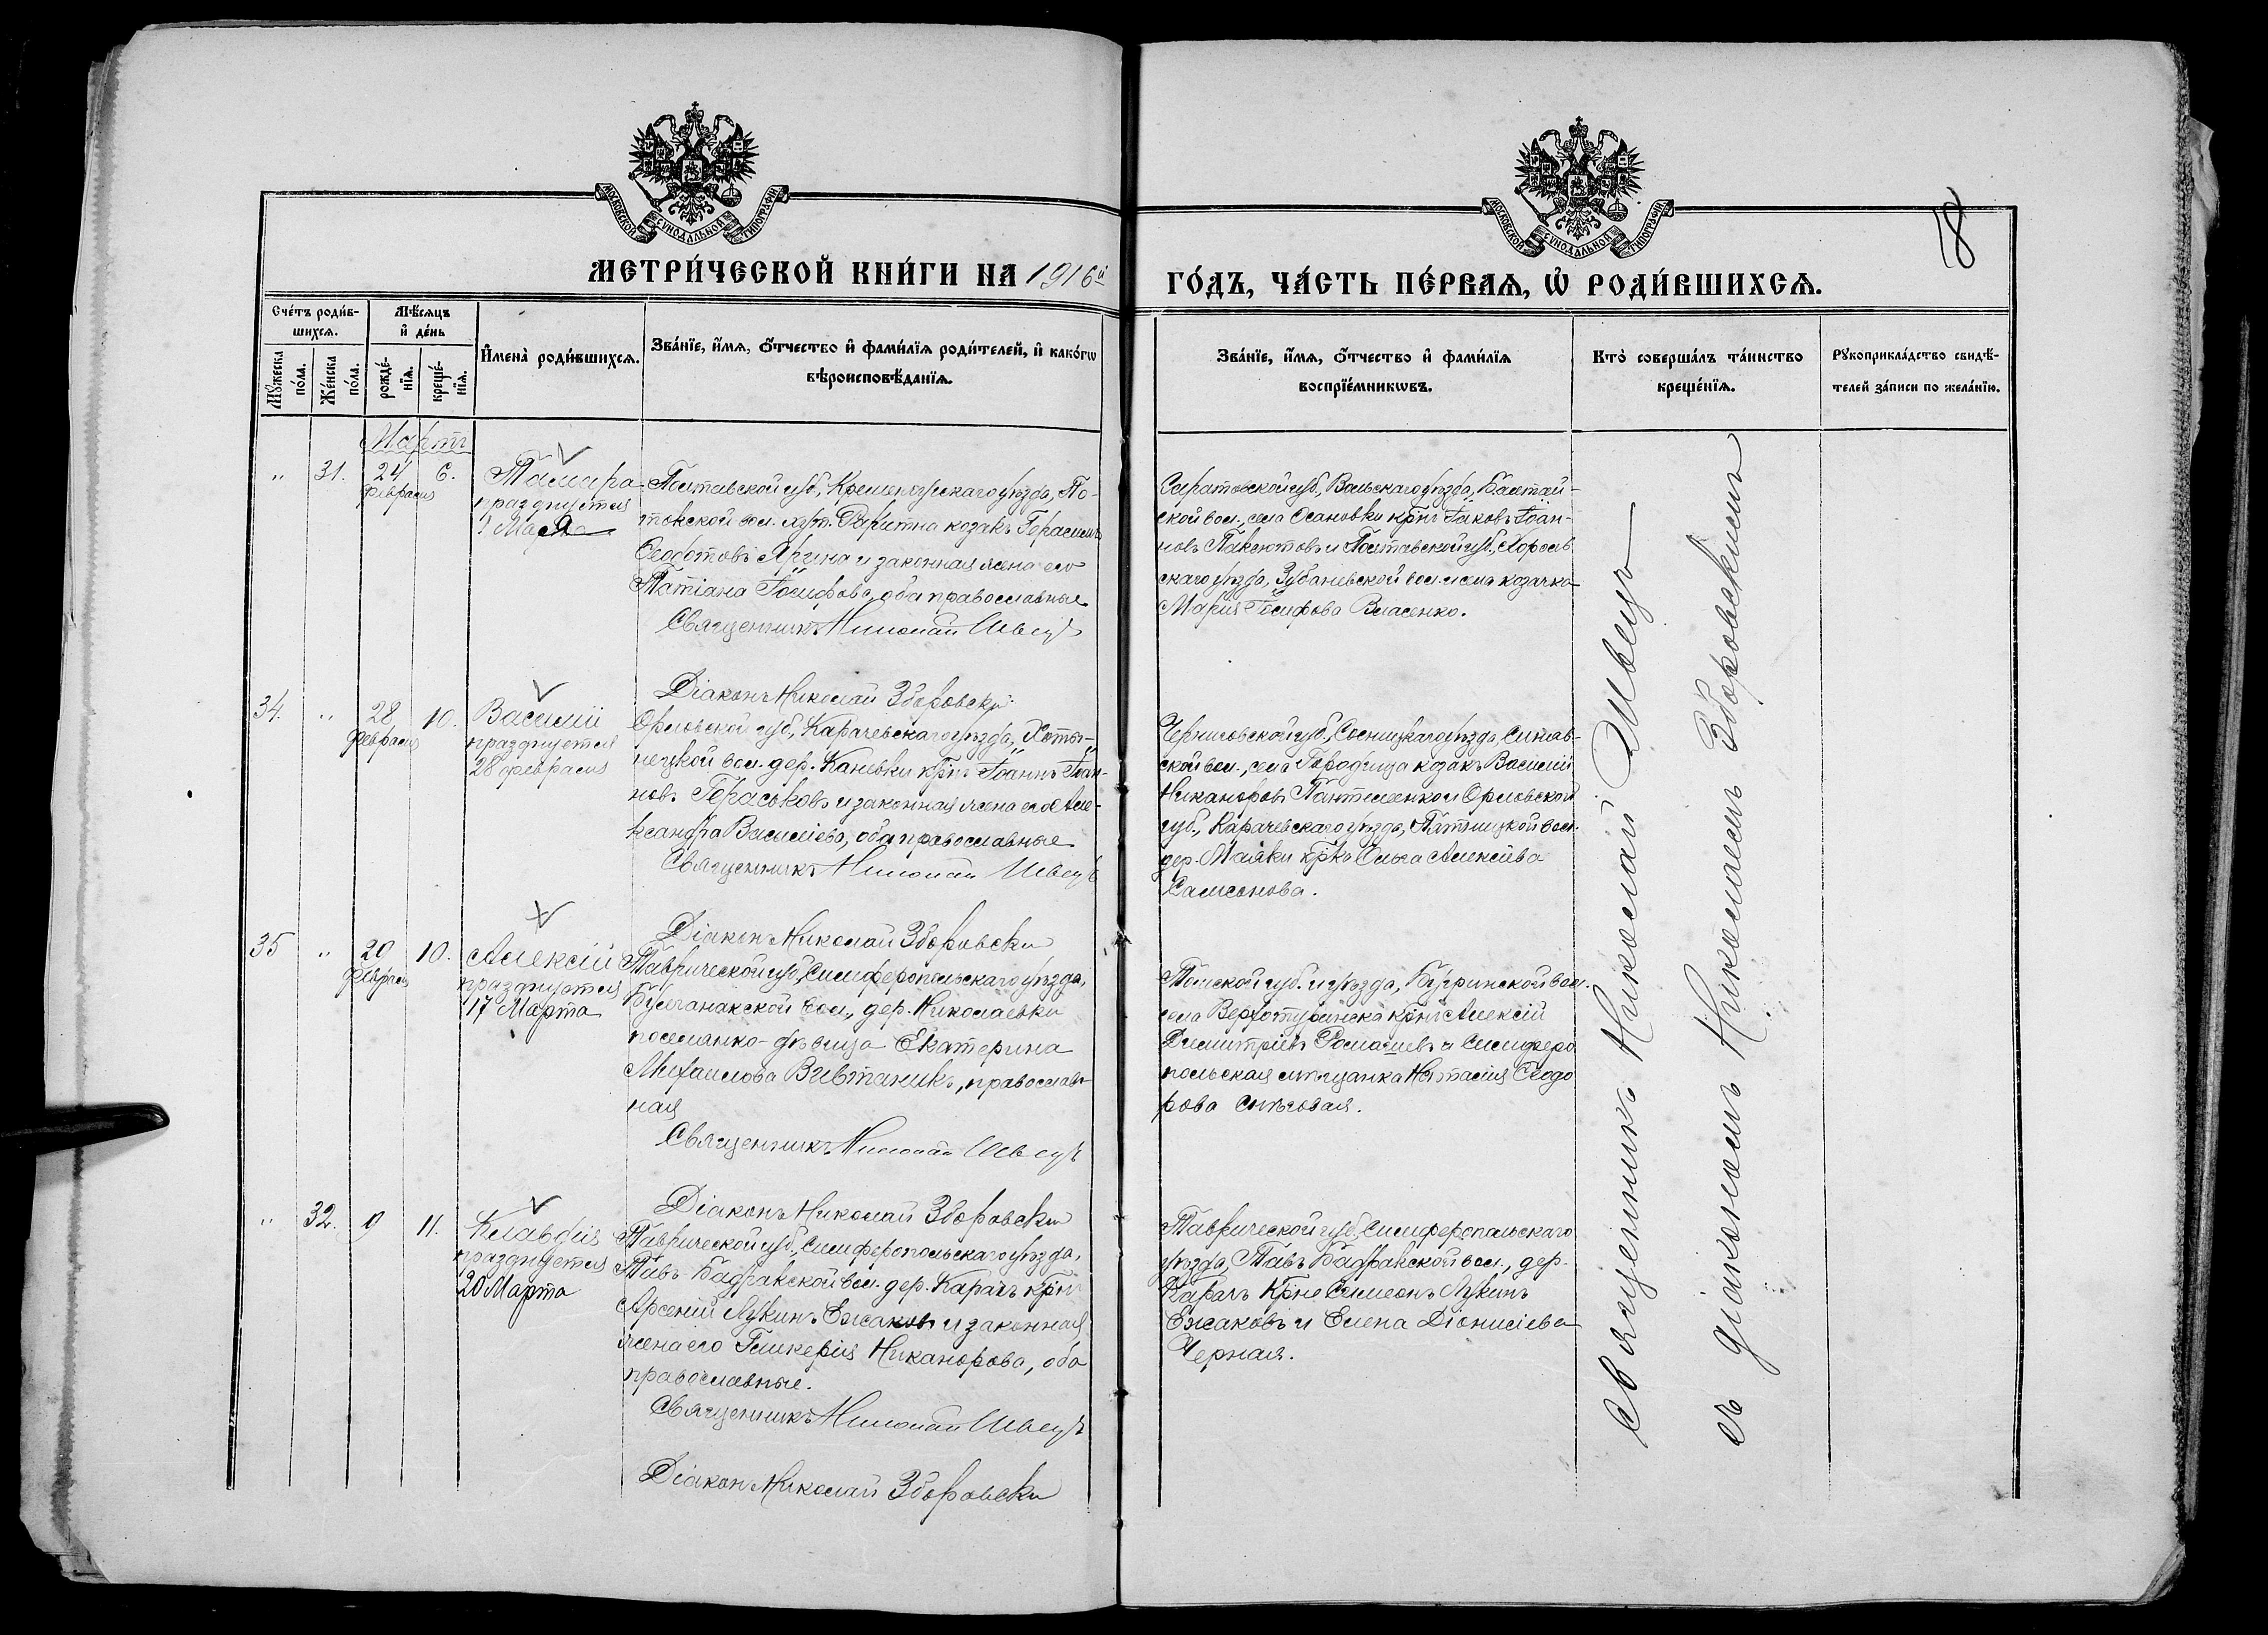 18
МОСКОВСКОЙ СѴНОДАЛЬНОЙ ТИПОГРАФІИ
МОСКОВСКОЙ СѴНОДАЛЬНОЙ ТИПОГРАФІИ
МЕТРИ́ЧЕСКОЙ КНИ́ГИ НА 1916й
ГО́ДЪ, ЧА́СТЬ ПЕ́РВАѦ, Ѡ҆ РОДИ́ВШИХСѦ.
Сче́тъ роди́в-
шихсѧ.
Мѣ́сѧцъ
и҆ де́нь
Мꙋ́жеска
по́ла.
Же́нска
по́ла.
рожде́-
нїѧ.
креще́-
нїѧ.
И҆мена̀ роди́вшихсѧ.
Зва́нїе, и҆́мѧ, ѻ҆́тчество и҆ фами́лїѧ роди́телей, и҆ како́гѡ
вѣроисповѣ́данїѧ.
Зва́нїе, и҆́мѧ, ѻ҆́тчество и҆ фами́лїѧ
воспрїе́мникѡвъ.
Кто̀ соверша́лъ та́инство
креще́нїѧ.
Рꙋкоприкла́дство свидѣ́-
телей за́писи по жела́нїю.
Мартъ
" 31. 24 6. Тамара
февраля
празднуется
1 Мая
Полтавской губ., Кременчугскаго уѣзда, По-
токской вол. хут. Ракитна козакъ Герасимъ
Ѳеодотовъ Ярина и законная жена его
Татіана Іосифова, оба православные
Священникъ Николай Швецъ
Діаконъ Николай Зборовскій
Саратовской губ., Вольскаго уѣзда, Балтай-
ской вол., села Осановки крнъ Іаковъ Іоан-
новъ Паксютовъ и Полтавской губ., Хороль-
скаго уѣзда, Зубаневской вол. и села козачка
Марія Іосифова Власенко.
34. " 28 10. Василій
февраля
празднуется
28 февраля
Орловской губ., Карачевскаго уѣзда, Хоты-
нецкой вол. дер. Каневки крнъ Іоаннъ Іоан-
новъ Гераськовъ и законная жена его Але-
ксандра Василіева, оба православные
Священникъ Николай Швецъ
Діаконъ Николай Зборовскій
Черниговской губ., Сосницкаго уѣзда, Синяв-
ской вол., села Городища козакъ Василій
Никаноровъ Пантиленко и Орловской
губ., Карачевскаго уѣзда, Пятницкой вол.
дер. Маяки крка Ольга Алексіева
Самсонова.
35 " 29 10. Алексій
февраля
празднуется
17 Марта
Таврической губ., Симферопольскаго уѣзда,
Булганакской вол., дер. Николаевки
поселянка-дѣвица Екатерина
Михаилова Вивтаникъ, православ-
ная
Священникъ Николай Швецъ
Діаконъ Николай Зборовскій
Томской губ. и уѣзда, Бугринской вол.
села Верхотуринска крнъ Алексій
Димитріевъ Ромашевъ и Симферо
польская мѣщанка Наталія Ѳеодо
рова Снѣговая.
" 32. 9 11. Клавдія
празднуется
20 Марта
Таврической губ., Симферопольскаго уѣзда,
Тавъ-Бадракской вол. дер. Карачъ крнъ
Арсеній Лукинъ Ежаковъ и законная
жена его Гликерія Никанорова, оба
православные.
Священникъ Николай Швецъ
Діаконъ Николай Зборовскій
Таврической губ., Симферопольскаго
уѣзда, Тавъ Бадракской вол., дер.
Карачъ Крне Симеонъ Лукинъ
Ежаковъ и Елена Діонисіева
Черная.
Священникъ Николай Швецъ
съ діакономъ Николаемъ Зборовскимъ